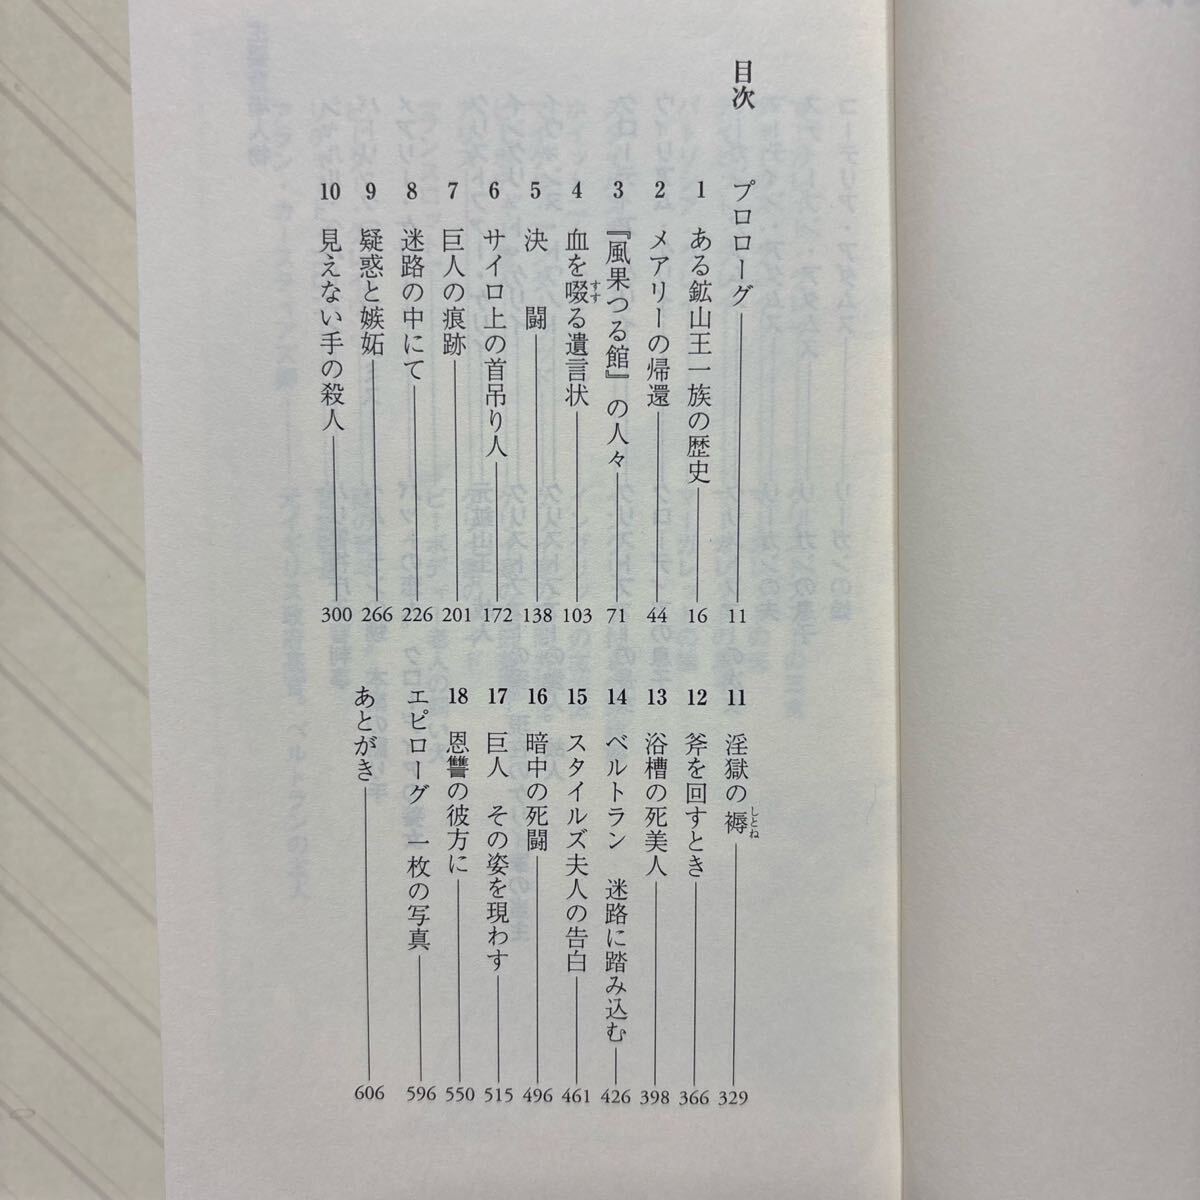 目次
プロローグ 11
1 ある鉱山王一族の歴史 16
2 メアリーの帰還 44
3 『風果つる館』の人々 71
4 血を啜る遺言状 103
すす
5 決 闘 138
6 サイロ上の首吊り人 172
7 巨人の痕跡 201
8 迷路の中にて 226
9 疑惑と嫉妬 266
10 見えない手の殺人 300
11 淫獄の褥 329
しとね
12 斧を回すとき 366
13 浴槽の死美人 398
14 ベルトラン 迷路に踏み込む 426
15 スタイルズ夫人の告白 461
16 暗中の死闘 496
17 巨人 その姿を現わす 515
18 恩讐の彼方に 550
エピローグ 一枚の写真 596
あとがき 606